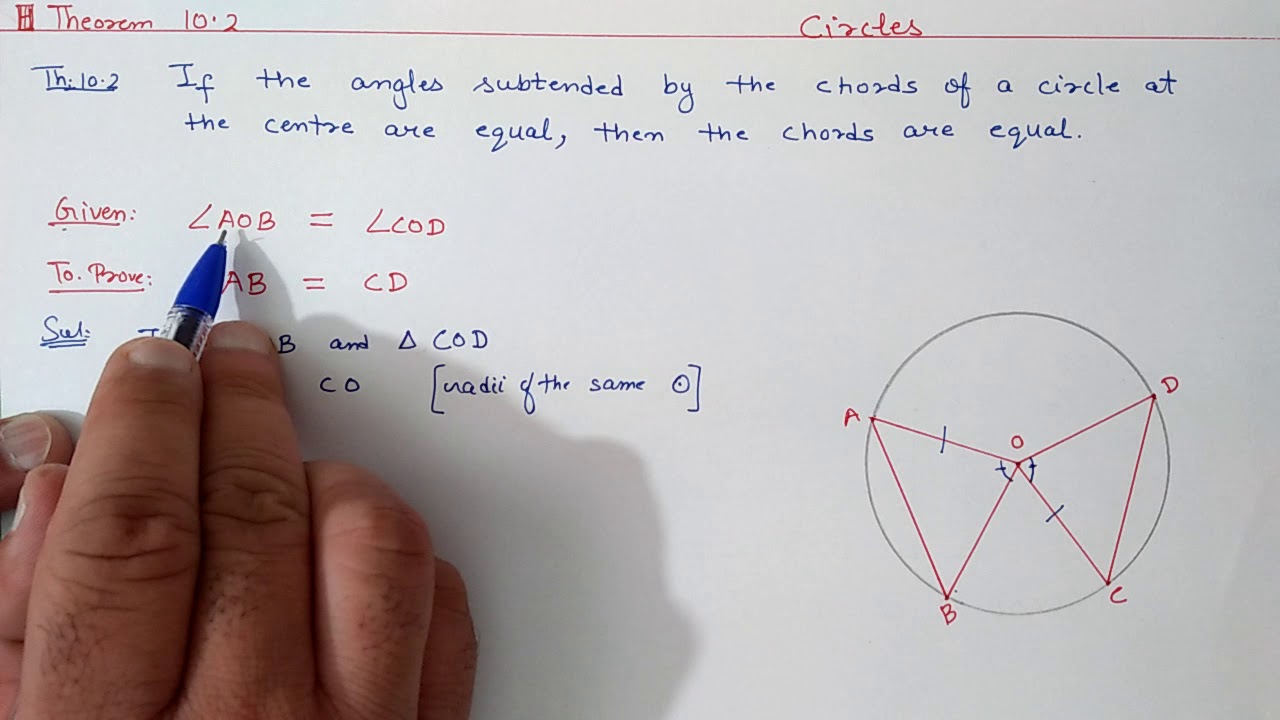 Theorem 10.2
Circles
Th: 10.2 If the angles subtended by the chords of a circle at
the centre are equal, then the chords are equal.
Given: ∠AOB = ∠COD
To. Prove: AB = CD
Sol: B and Δ COD
CO [radii of the same ⊙]
A
O
D
B
C